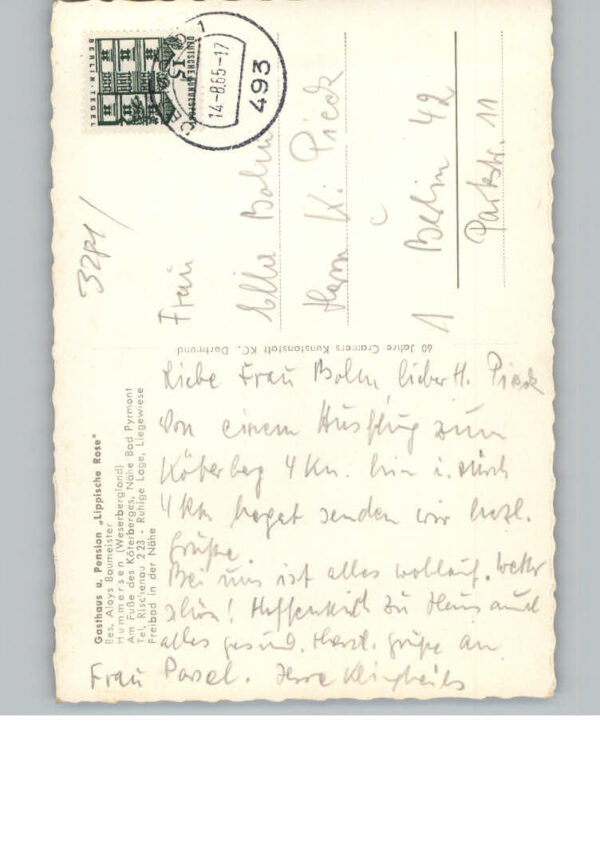 DEUTSCHE BUNDESPOST
15
BERLIN-TEGEL
493
14-8.65-17
1
Frau
Ellie Bolm
Herrn K. Pieck
1 Berlin 42
Parkstr. 11
60 Jahre Cramers Kunstanstalt KG., Dortmund
Gasthaus u. Pension „Lippische Rose"
Bes. Aloys Baumeister
Hummersen (Weserbergland)
Am Fuße des Köterberges, Nähe Bad Pyrmont
Tel. Rischenau 223 - Ruhige Lage, Liegewiese
Freibad in der Nähe
Liebe Frau Bolm, lieber H. Pieck
Von einem Ausflug zum
Köterberg 4 Km. hin u. zurück
4 Km senden wir herzl.
Grüße
Bei uns ist alles wohlauf. Wetter
schön! Hoffentlich zu Haus auch
alles gesund. Herzl. Grüße an
Frau